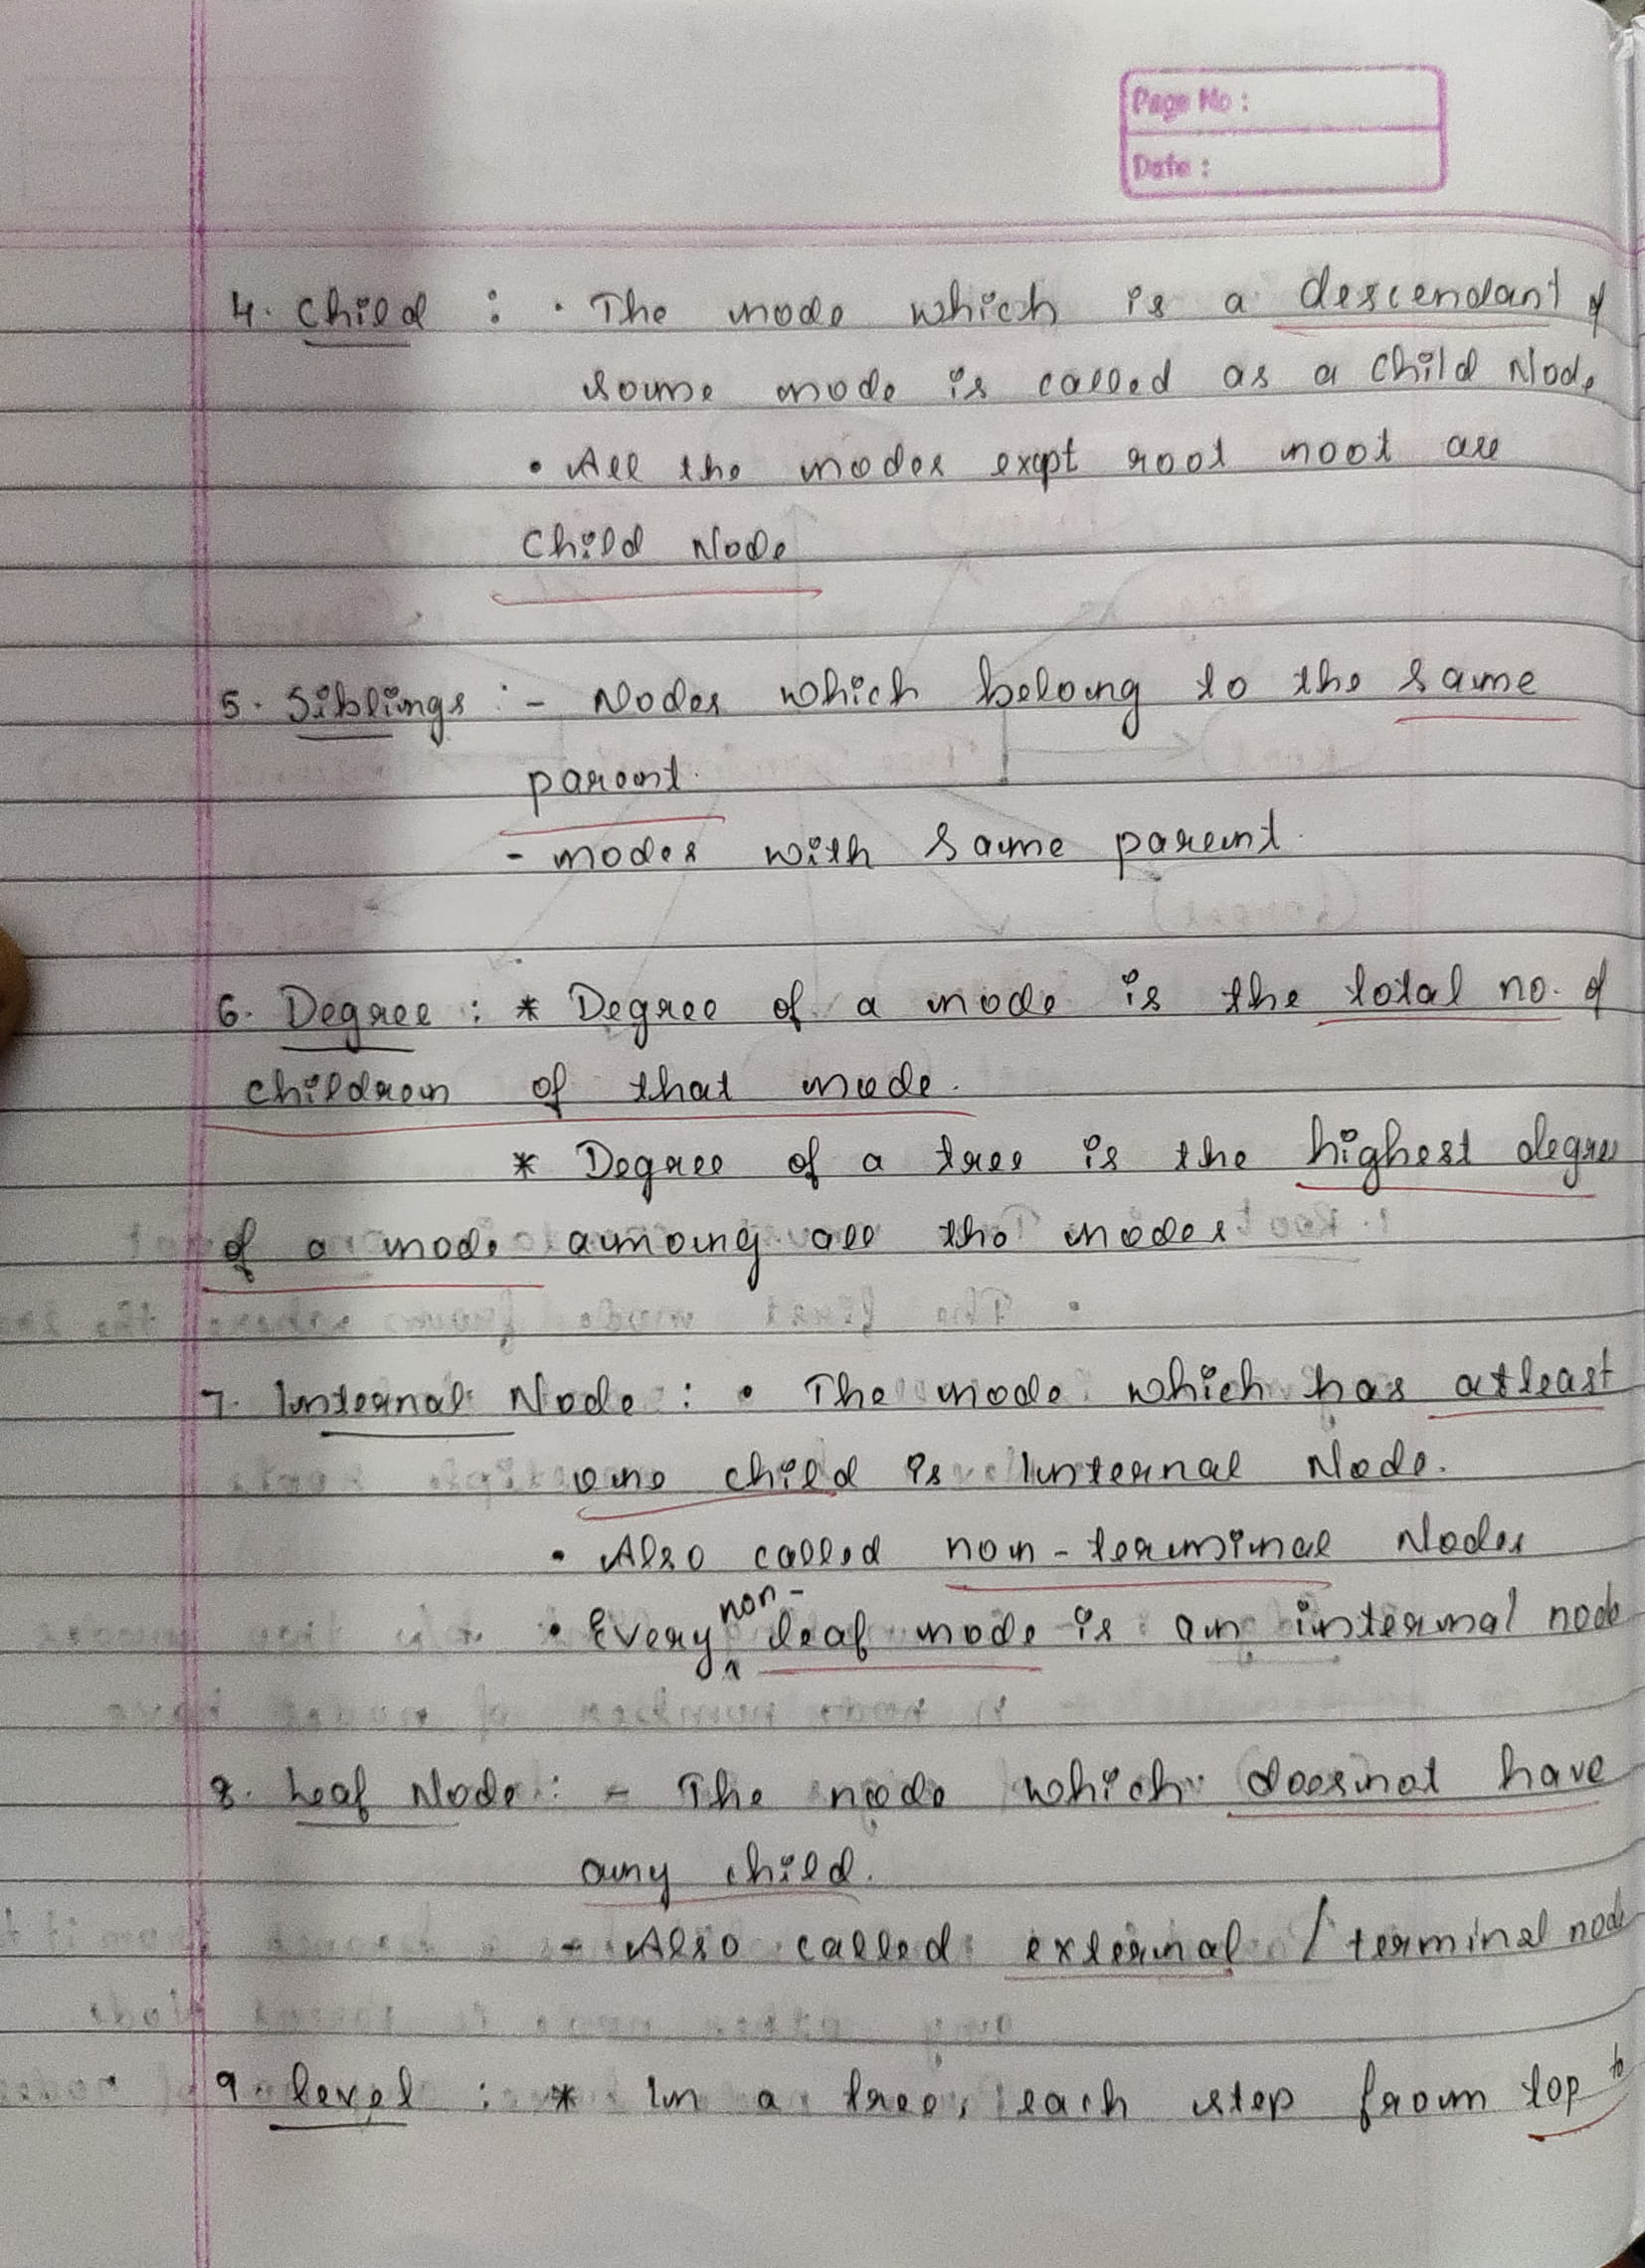 Page No :
Date :
4. Child : • The node which is a descendant of
some node is called as a Child Node
• All the nodes exept root noot are
Child Node
5. Siblings :- Nodes which belong to the same
parent.
- nodes with same parent.
6. Degree : * Degree of a node is the total no. of
children of that node.
* Degree of a tree is the highest degree
of a node among all the nodes
7. Internal Node : • The node which has atleast
one child is Internal Node.
• Also called non-terminal Nodes
• Every non-leaf node is an internal node
8. Leaf Node : - The node which doesnot have
any child.
- Also called external / terminal node
9. level : * In a tree, each step from top to